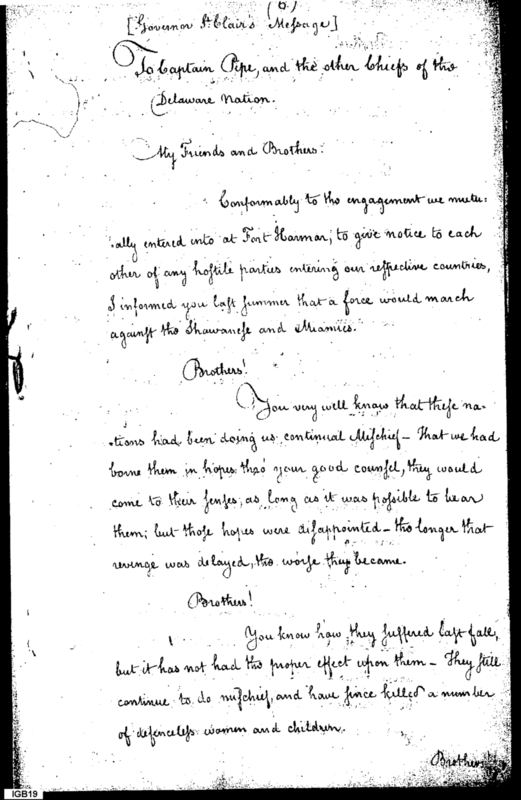 (6.)
[Governor St. Clair's Message]
To Captain Pipe, and the other Chiefs of the
Delaware Nation.
My Friends and Brothers.
Conformably to the engagement we mutu:
:ally entered into at Fort Harmar, to give notice to each
other of any hostile parties entering our respective countries,
I informed you last summer that a force would march
against the Shawanese and Miamies.
Brothers!
You very well know that these na:
:tions had been doing us continual Mischief – That we had
borne them in hopes thro' your good counsel, they would
come to their senses, as long as it was possible to bear
them; but those hopes were disappointed – the longer that
revenge was delayed, the worse they became.
Brothers!
You know how they suffered last fall,
but it has not had the proper effect upon them – They still
continue to do mischief, and have since killed a number
of defenceless women and children.
Brothers
IGB19